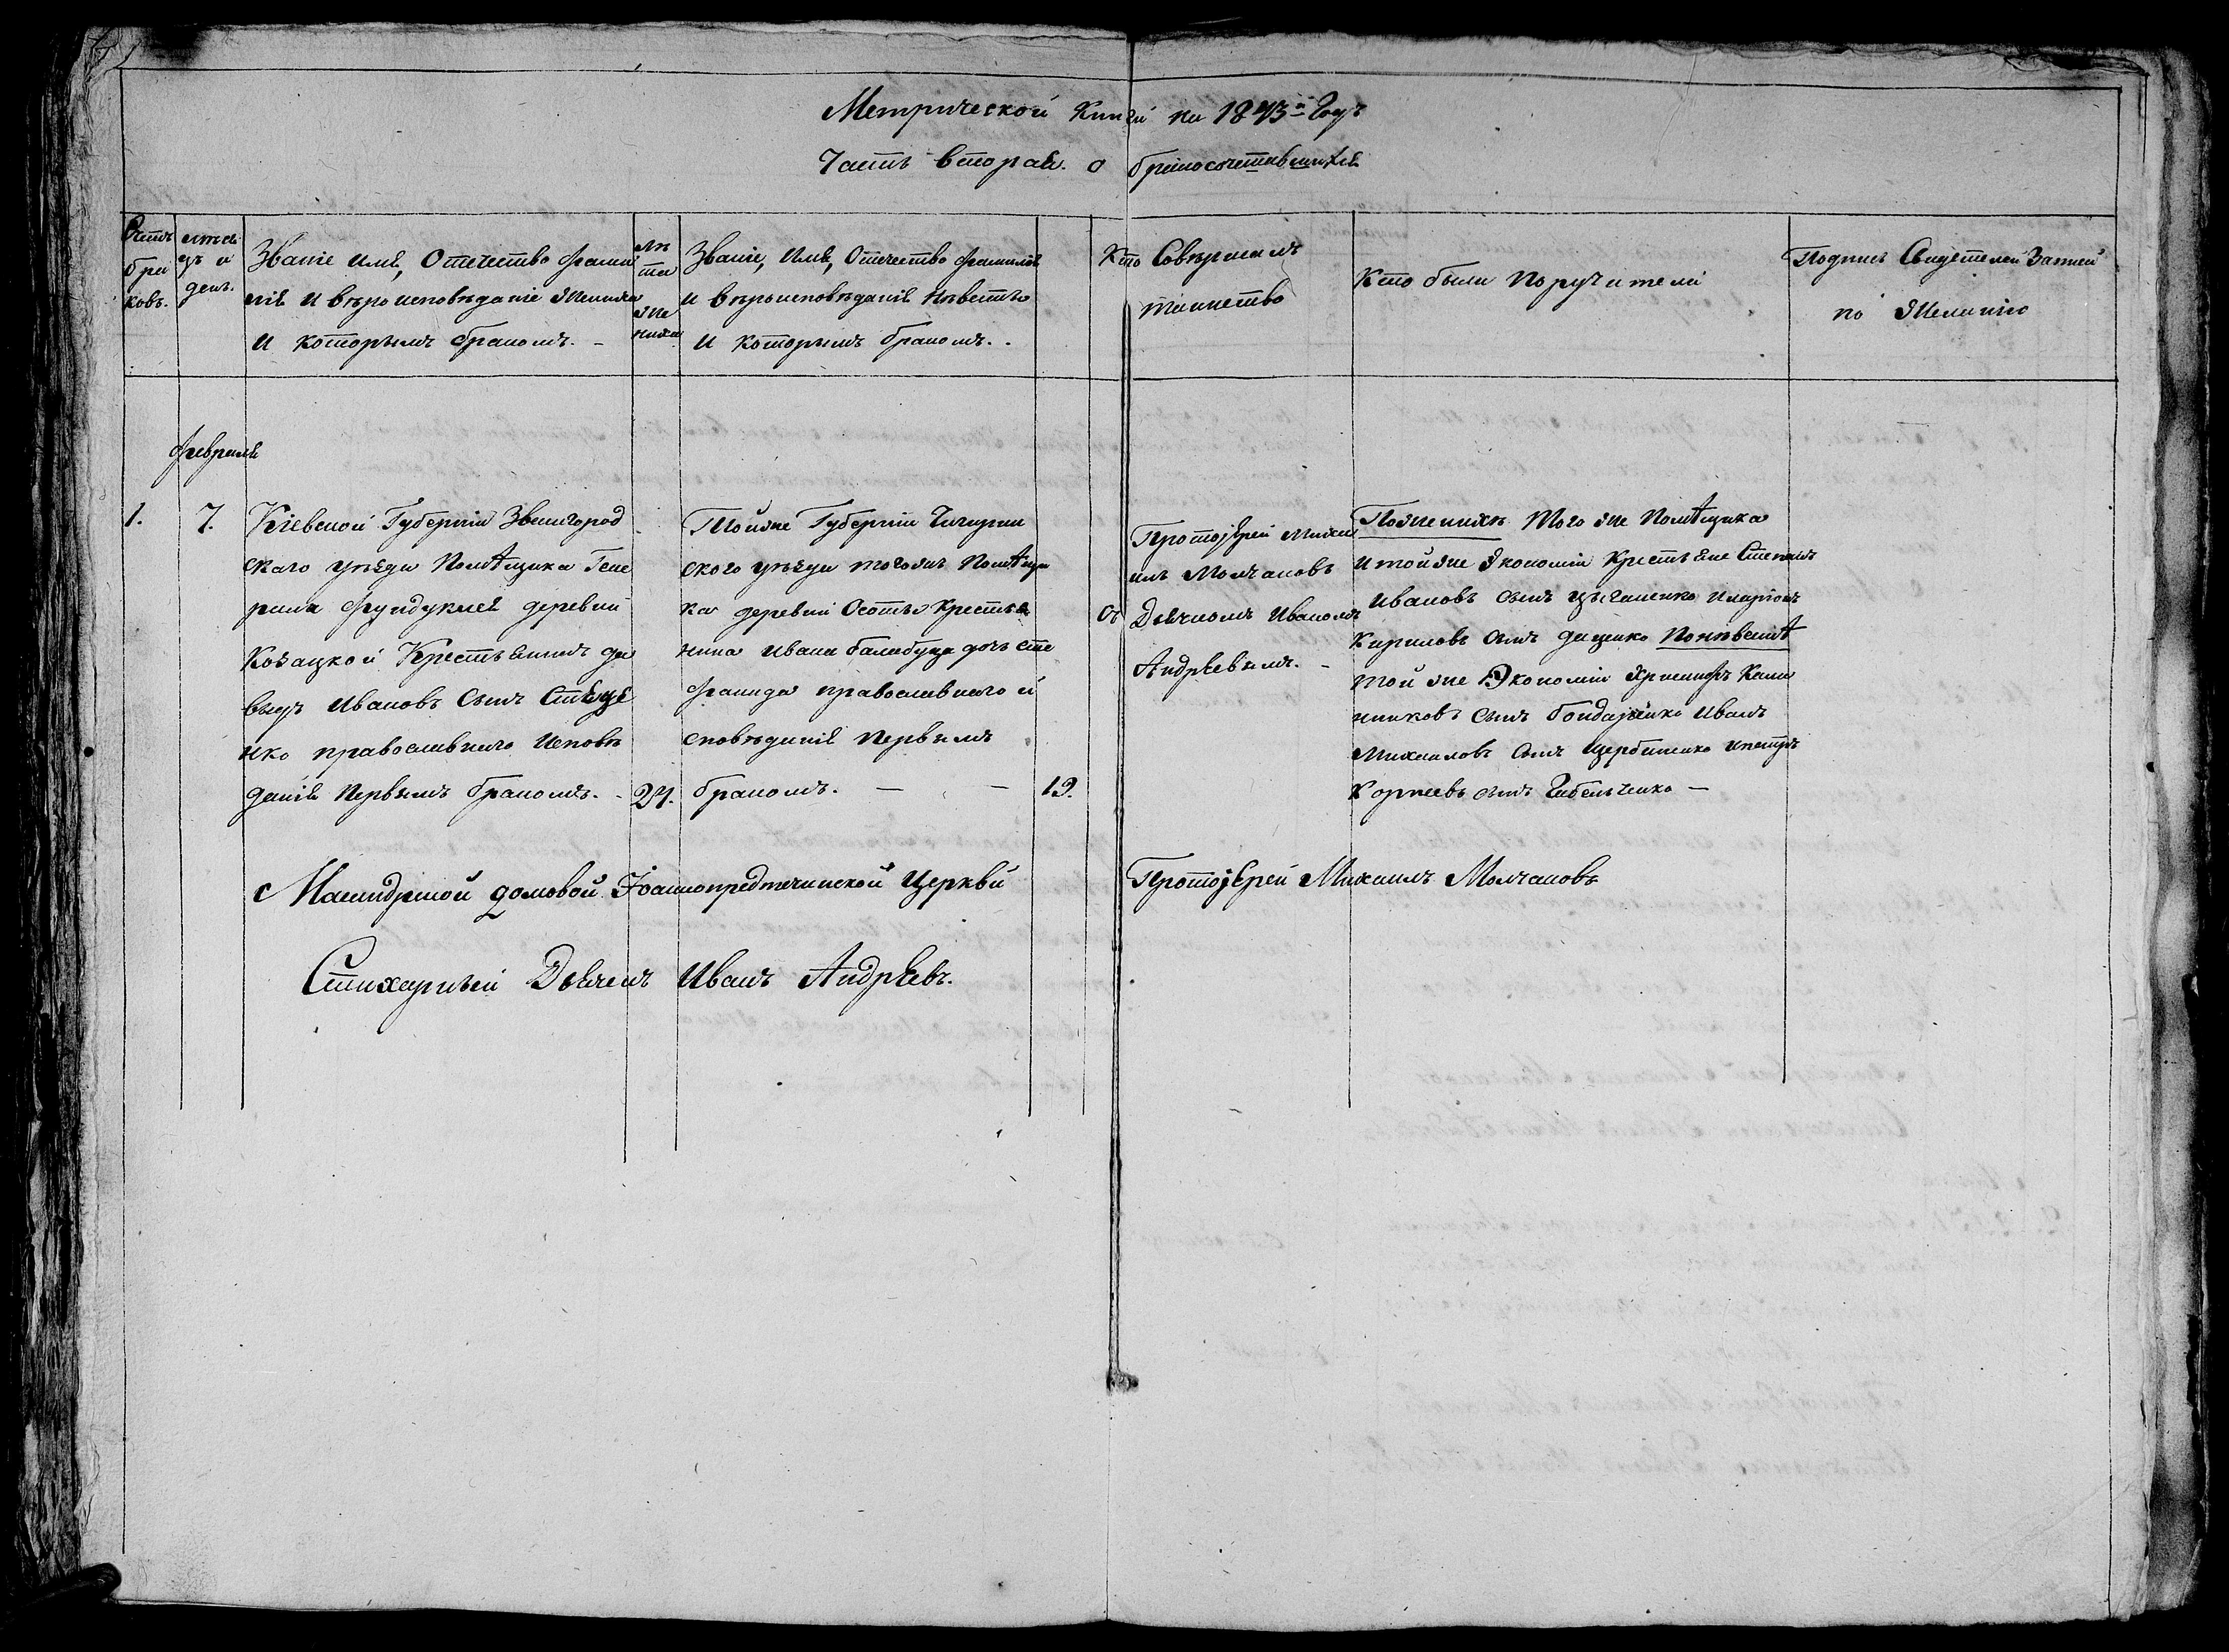 Метрической Книги на 1843й Годъ
Часть вторая. о бракосочетавшихся
Счетъ браковъ.
мѣсяцъ и день.
Званіе имя, Отечество фамилія и вѣроисповѣданіе жениха
и которымъ бракомъ. -
лѣта жениха
Званіе, Имя, Отечество фамилія
и вѣроисповѣданіе невѣсты
и которымъ бракомъ..
Кто Совершалъ
таинство
Кто были поручители
Подпись Свидетелей Записи
по желанію
февраля
1.
7.
Кіевской Губерніи Звенигород
скаго уѣзда Помѣщика Гене
рала Фундуклея деревни
Козацкой Крестьянинъ да
выдъ Ивановъ сынъ
нко православнаго исповѣ
данія первымъ бракомъ. -
24.
Тойже Губерніи Чигирин
ского уѣзда тогожъ Помѣщи
ка деревни Осоты Крестья
нина Ивана Балабухи дочь Сте
фанида православнаго и
сповѣданія первымъ
бракомъ. — —
19.
Протоіерей Михаи
илъ Молчановъ
съ Дьячкомъ Иваномъ
Андреевымъ. -
По женихѣ того же помѣщика
и тойже экономіи крестьяне Степанъ
Ивановъ сынъ Цыганенко Иларіонъ
Кириловъ сынъ Даценко По невѣстѣ
той же Экономіи
сынъ Бондаренко Иванъ
Михаиловъ сынъ Щербиненко и петръ
Корнеевъ сынъ —
Масандрской домовой Іоаннопредтечинской Церкви
Протоіерей Михаилъ Молчановъ
Стихарный Дьячекъ Иванъ Андреевъ.